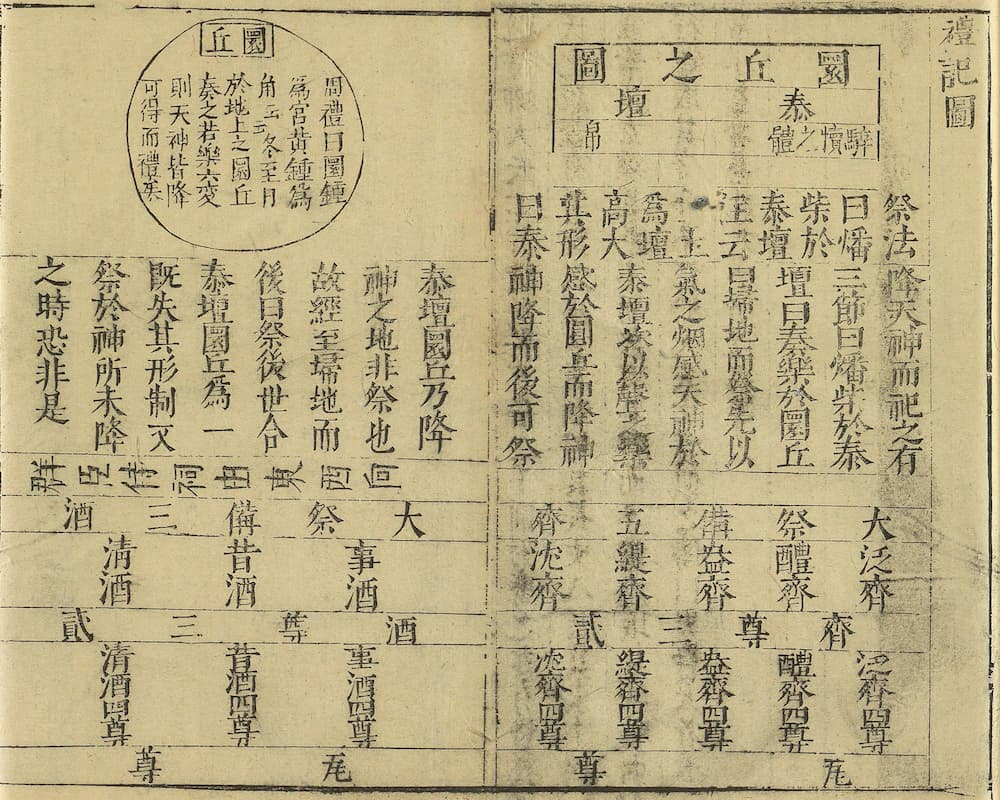 禮記圖
圜丘之圖
泰壇
騂犢之體
帛
祭法
曰燔
柴於
泰壇
王云
土
為壇
高大
其形
曰泰
降天神而祀之有
三節曰燔柴於泰
壇曰奏樂於圜丘
曰掃地而祭先以
氣之烟感天神於
泰壇次以聲之樂
感於圜丘而降神
神降而後可祭
大祭備五齊
泛齊
醴齊
盎齊
緹齊
沈齊
齊尊三貳
泛齊四尊
醴齊四尊
盎齊四尊
緹齊四尊
沈齊四尊
瓦尊
圜丘
周禮曰圜鍾
為宮黃鍾為
角云云冬至日
於地上之圜丘
奏之若樂六變
則天神皆降
可得而禮矣
泰壇圜丘乃降
神之地非祭也
故經至掃地而
後曰祭後世合
泰壇圜丘為一
既失其形制又
祭於神所未降
之時恐非是
群臣侍祠由東西向
大祭備三酒
事酒
昔酒
清酒
酒尊三貳
事酒四尊
昔酒四尊
清酒四尊
瓦尊